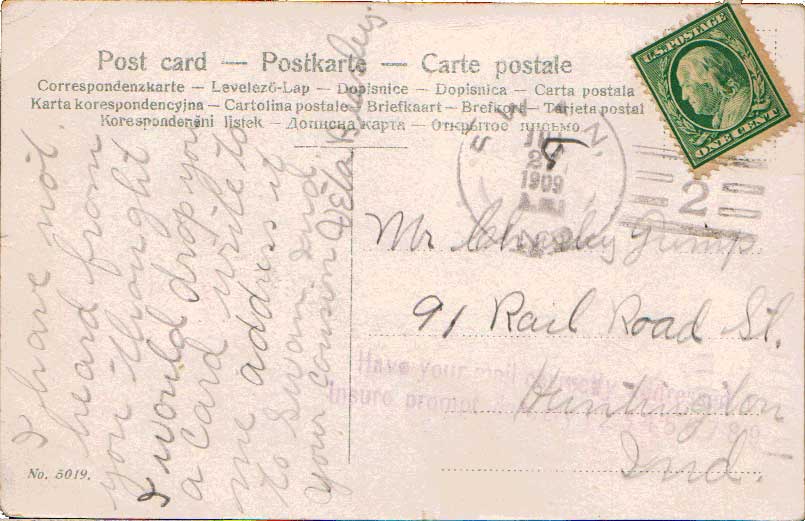 Post card — Postkarte — Carte postale
Correspondenzkarte – Levelező-Lap – Dopisnice – Dopisnica – Carta postala
Karta korespondencyjna – Cartolina postale – Briefkaart – Brefkort – Tarjeta postal
Korespondenční lístek – Дописна карта – Открытое письмо
U.S. POSTAGE
ONE CENT
1909
2
Mr Gump
91 Rail Road St.
Huntington
Ind.
Have your mail correctly addressed
Insure prompt
I have not
heard from
you thought
I would drop you
a card write to
me address it
to Swan, Ind
your cousin
No. 5019.